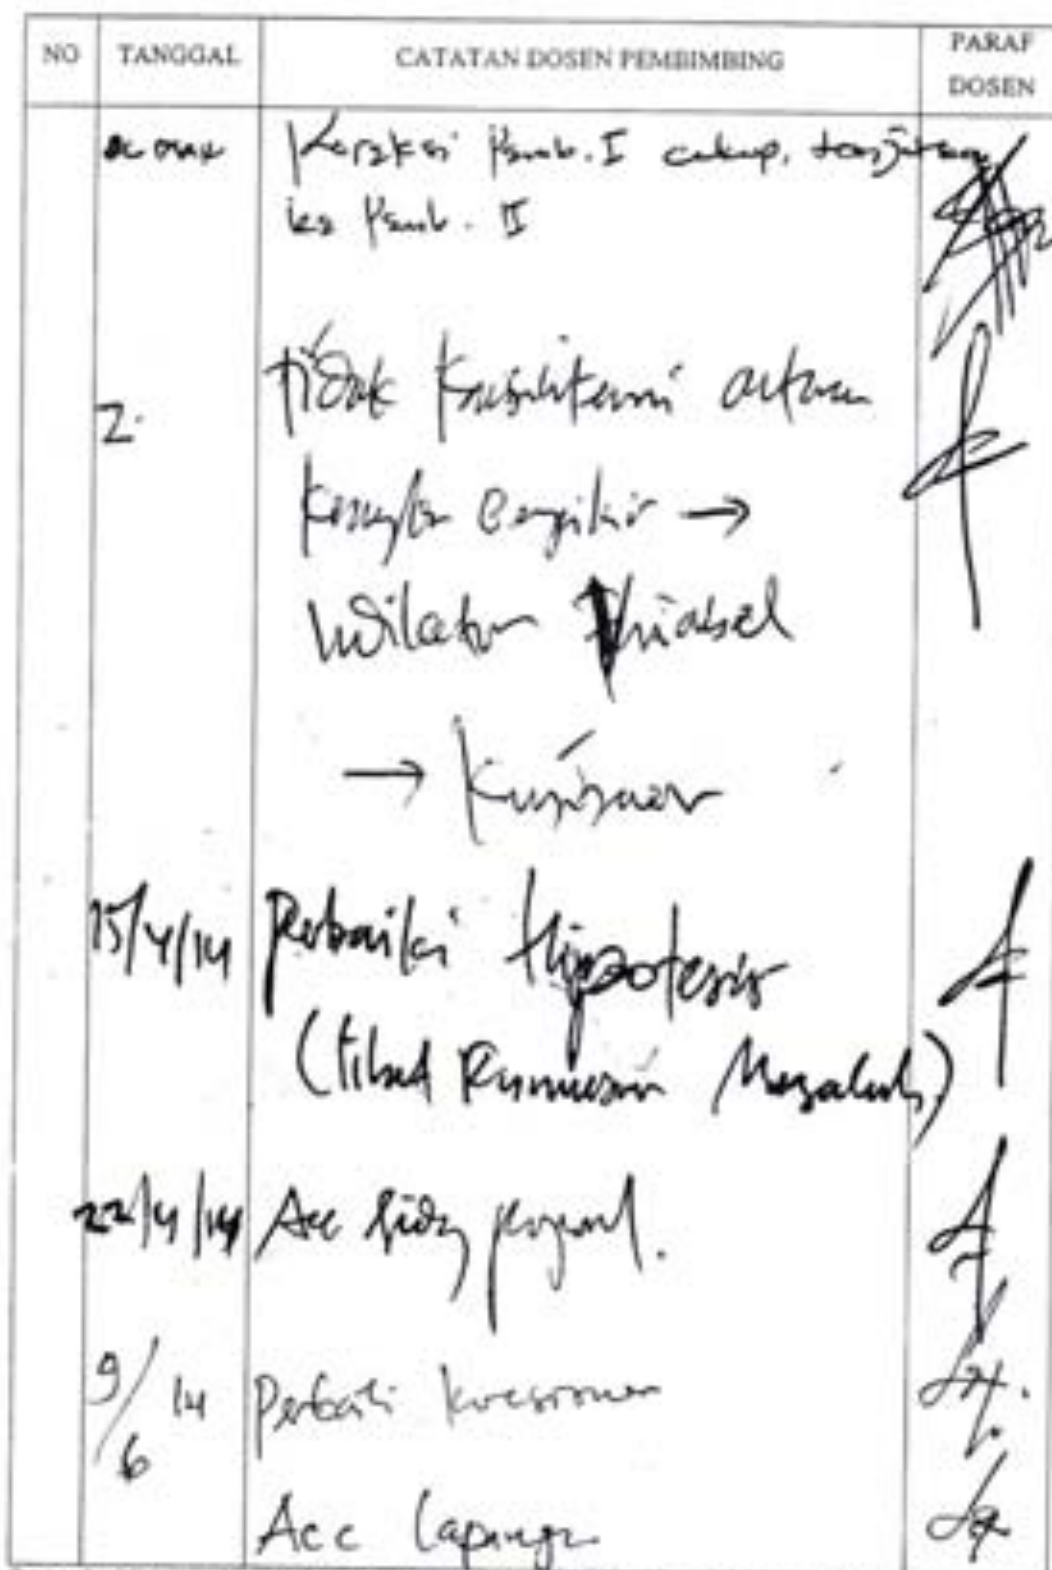 NO TANGGAL CATATAN DOSEN PEMBIMBING PARAF DOSEN
Koreksi Pemb. I cukup, lanjutkan
ke Pemb. II
2. Tidak konsistensi antara
→
Indikator Variabel
→ Kuisioner
15/4/14 Perbaiki Hipotesis
(lihat Rumusan Masalah)
22/4/14 Acc
9/6 14 Perbaiki kuesioner
Acc lapangan